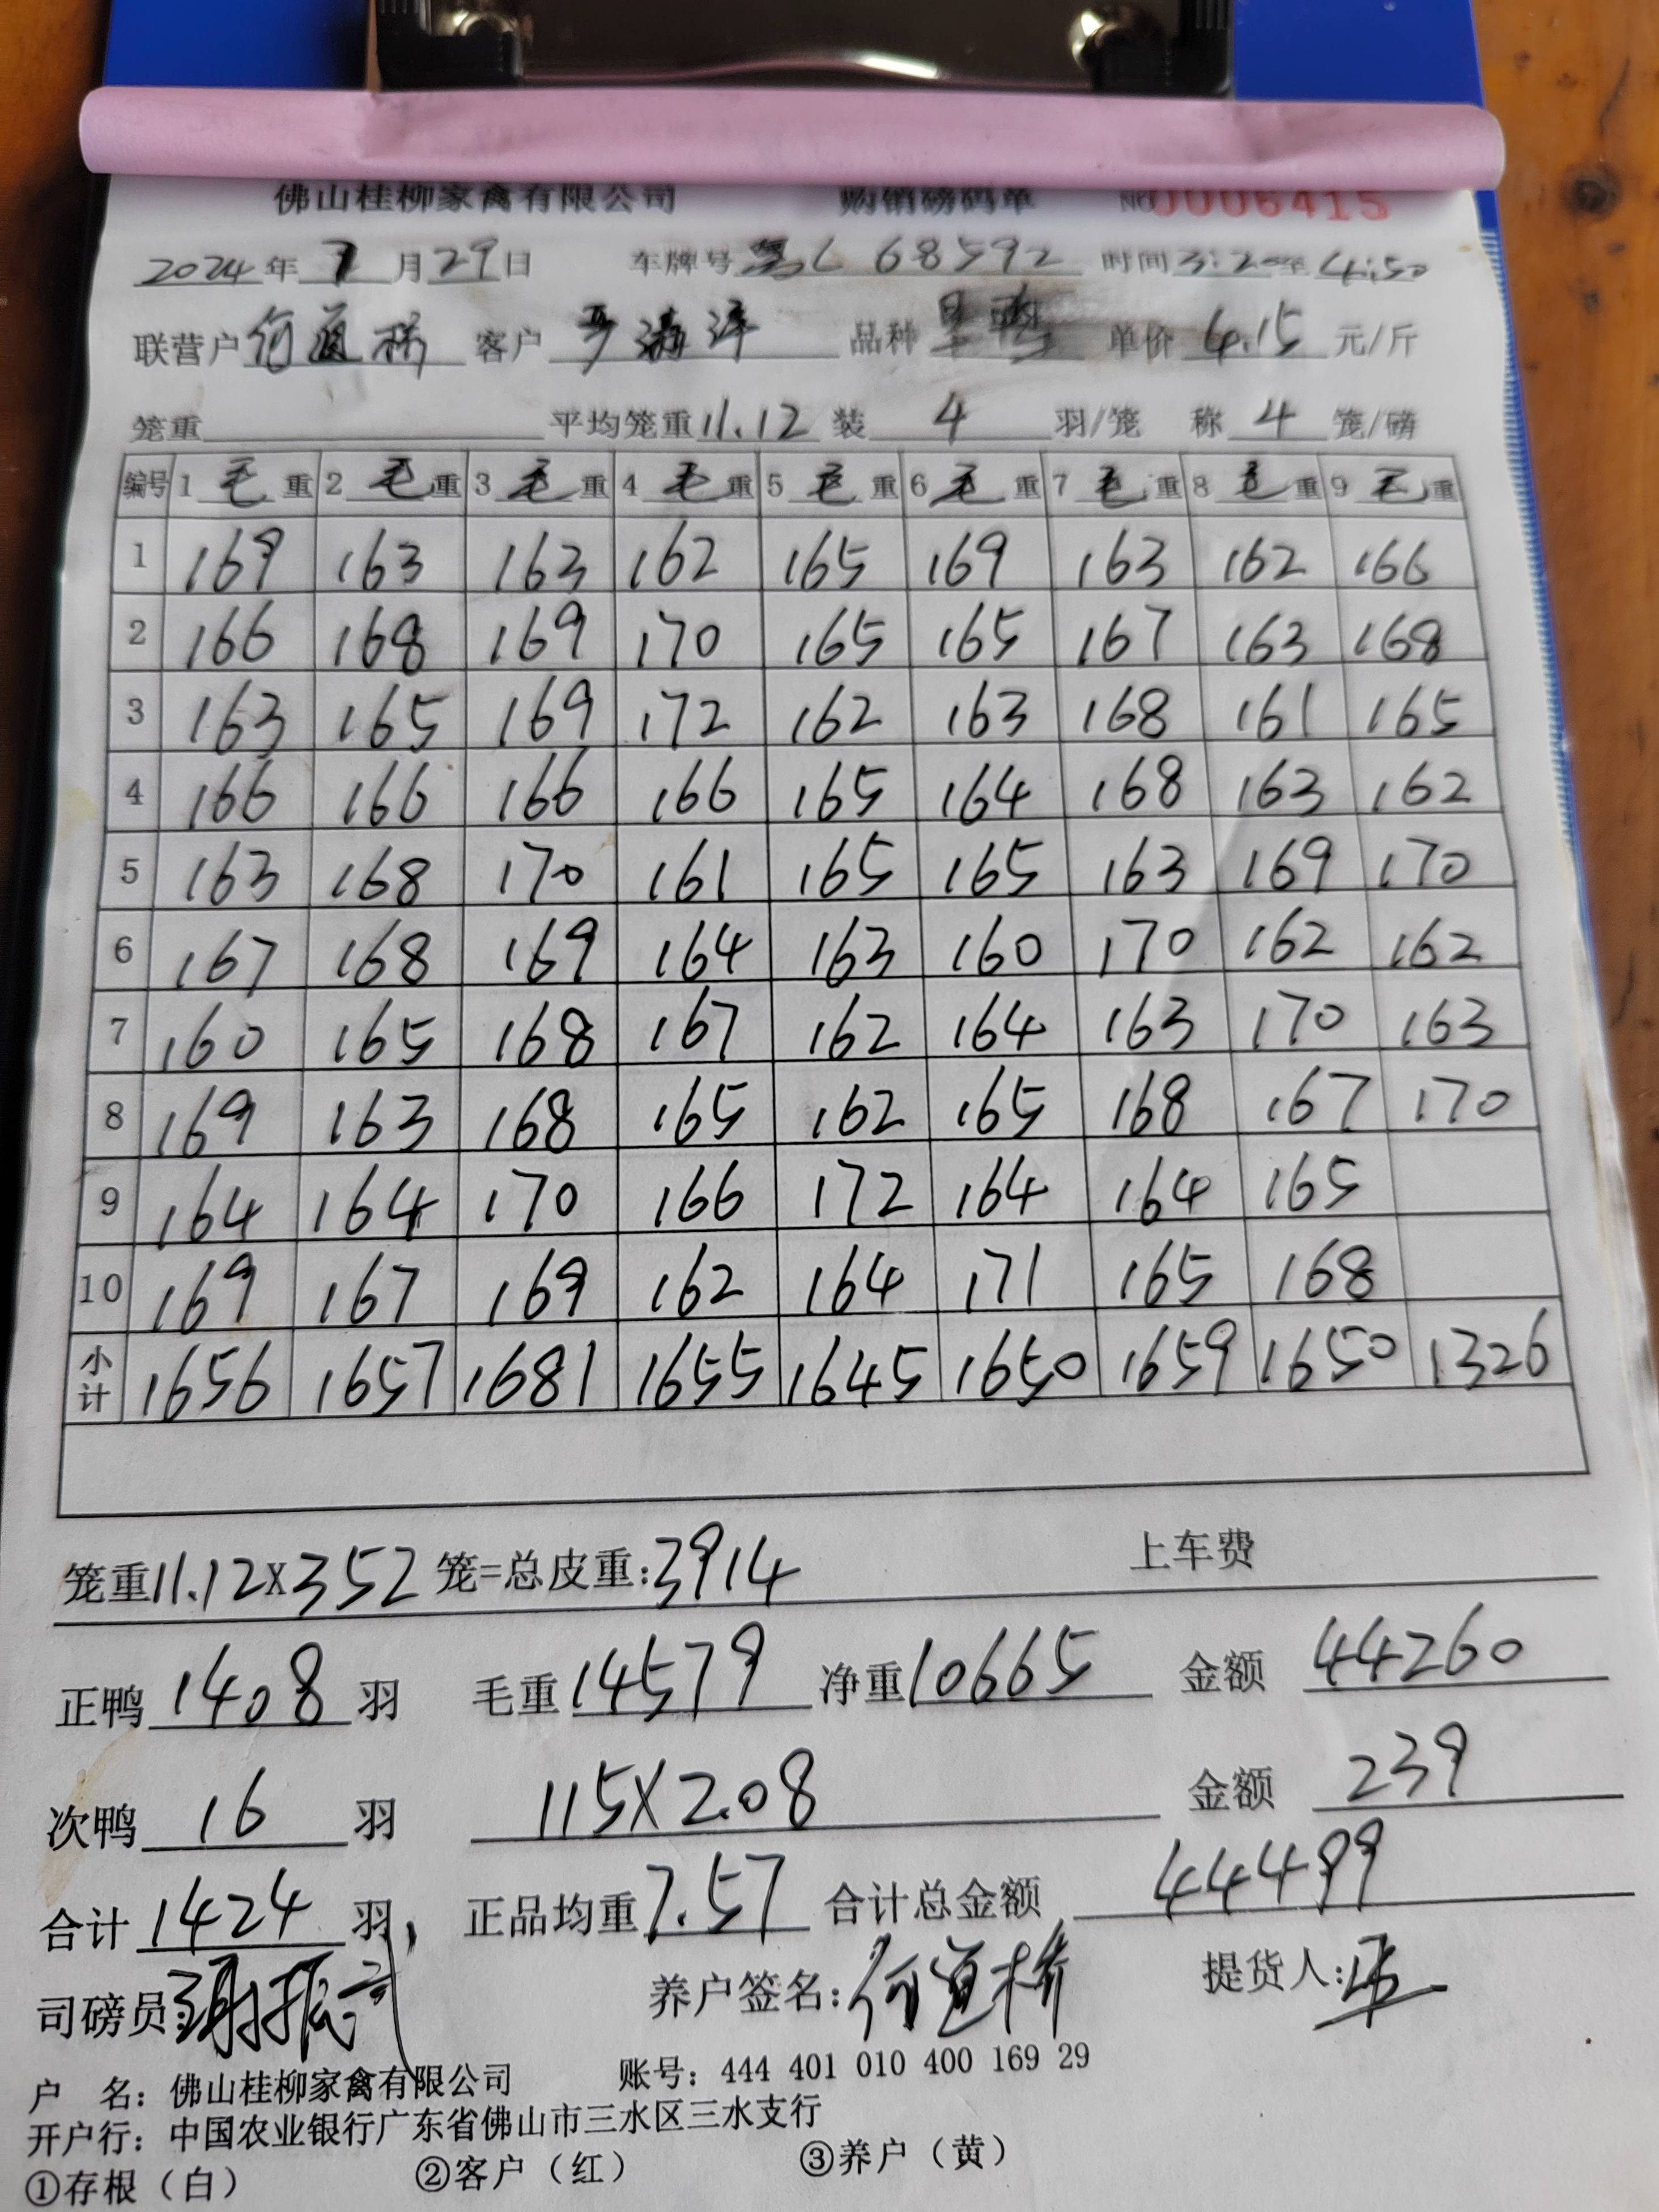 佛山桂柳家禽有限公司 购销磅码单 NO 0006415
2024年 7 月 29 日 车牌号 L 68592 时间 3:20 至 4:50
联营户 何道桥 客户 品种 单价 4.15 元/斤
笼重 平均笼重 11.12 装 4 羽/笼 称 4 笼/磅
编号 1 毛 重 2 毛 重 3 毛 重 4 毛 重 5 毛 重 6 毛 重 7 毛 重 8 毛 重 9 毛 重
1 169 163 163 162 165 169 163 162 166
2 166 168 169 170 165 165 167 163 168
3 163 165 169 172 162 163 168 161 165
4 166 166 166 166 165 164 168 163 162
5 163 168 170 161 165 165 163 169 170
6 167 168 169 164 163 160 170 162 162
7 160 165 168 167 162 164 163 170 163
8 169 163 168 165 162 165 168 167 170
9 164 164 170 166 172 164 164 165
10 169 167 169 162 164 171 165 168
小计 1656 1657 1681 1655 1645 1650 1659 1650 1326
笼重 11.12 X 352 笼=总皮重: 3914 上车费
正鸭 1408 羽 毛重 14579 净重 10665 金额 44260
次鸭 16 羽 115X2.08 金额 239
合计 1424 羽, 正品均重 7.57 合计总金额 44499
司磅员: 养户签名: 何道桥 提货人:
户 名: 佛山桂柳家禽有限公司 账号: 444 401 010 400 169 29
开户行: 中国农业银行广东省佛山市三水区三水支行
①存根（白） ②客户（红） ③养户（黄）